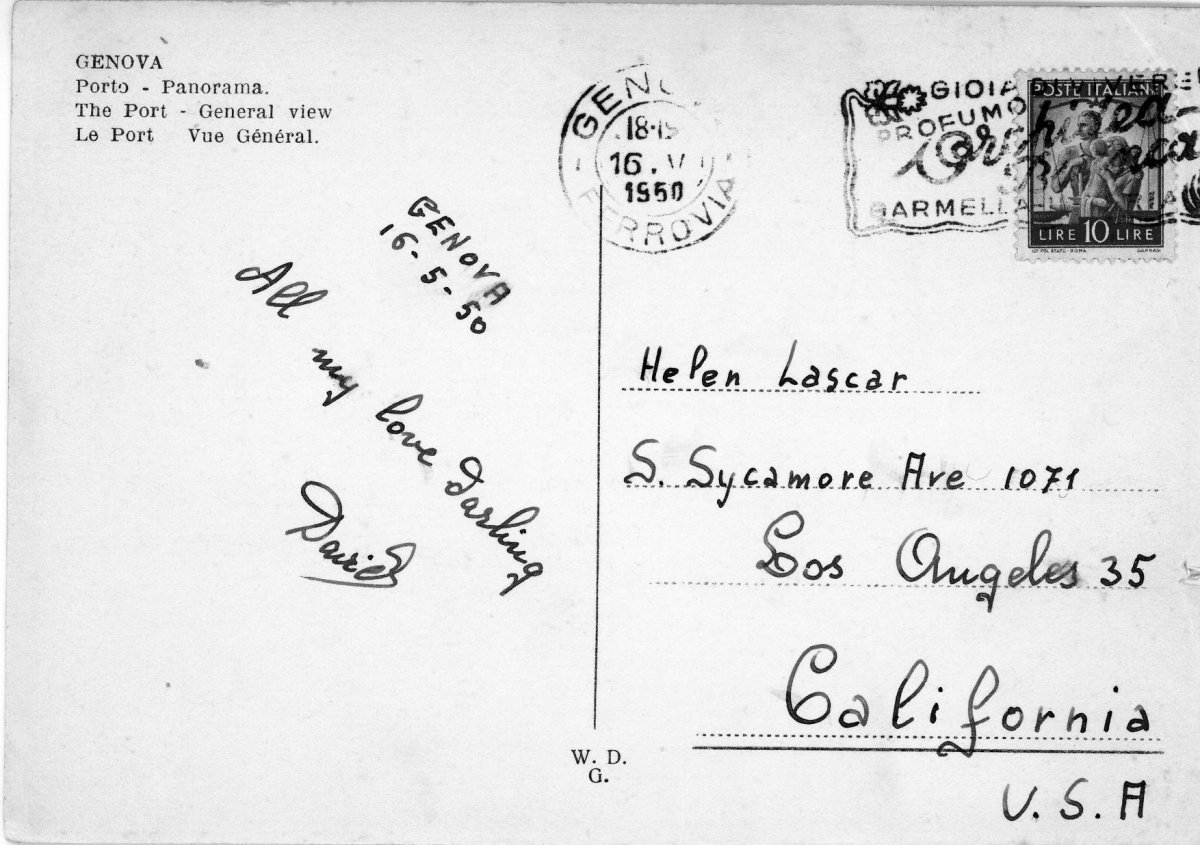 GENOVA
Porto - Panorama.
The Port - General view
Le Port Vue Général.
GENOVA
18-19
16. V
1950
FERROVIA
GIOIA
PROFUMO
POSTE ITALIANE
LIRE 10 LIRE
GENOVA
16-5-50
All my love Darling
David
Helen Lascar
S. Sycamore Ave 1071
Los Angeles 35
California
U.S.A
W. D.
G.